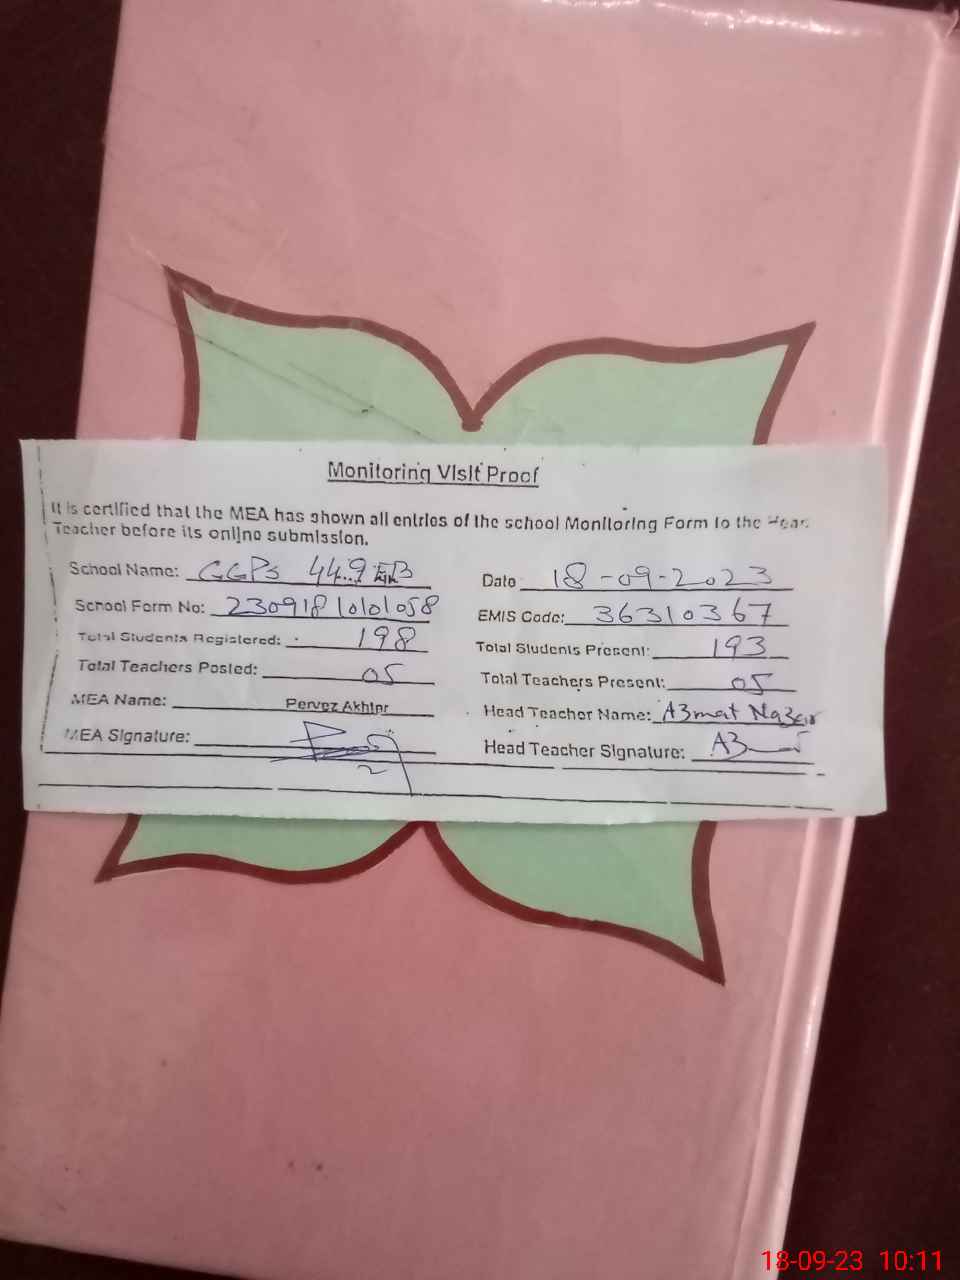 Monitoring Visit Proof
It is certified that the MEA has shown all entries of the school Monitoring Form to the Head
Teacher before its online submission.
School Name: GGPS 44.9
Date 18-09-2023
School Form No: 23091810101058
EMIS Code: 36310367
Total Students Registered: 198
Total Students Present: 193
Total Teachers Posted: 05
Total Teachers Present: 05
MEA Name: Pervez Akhtar
Head Teacher Name: A3mat Na3eer
MEA Signature:
Head Teacher Signature: A3
18-09-23 10:11